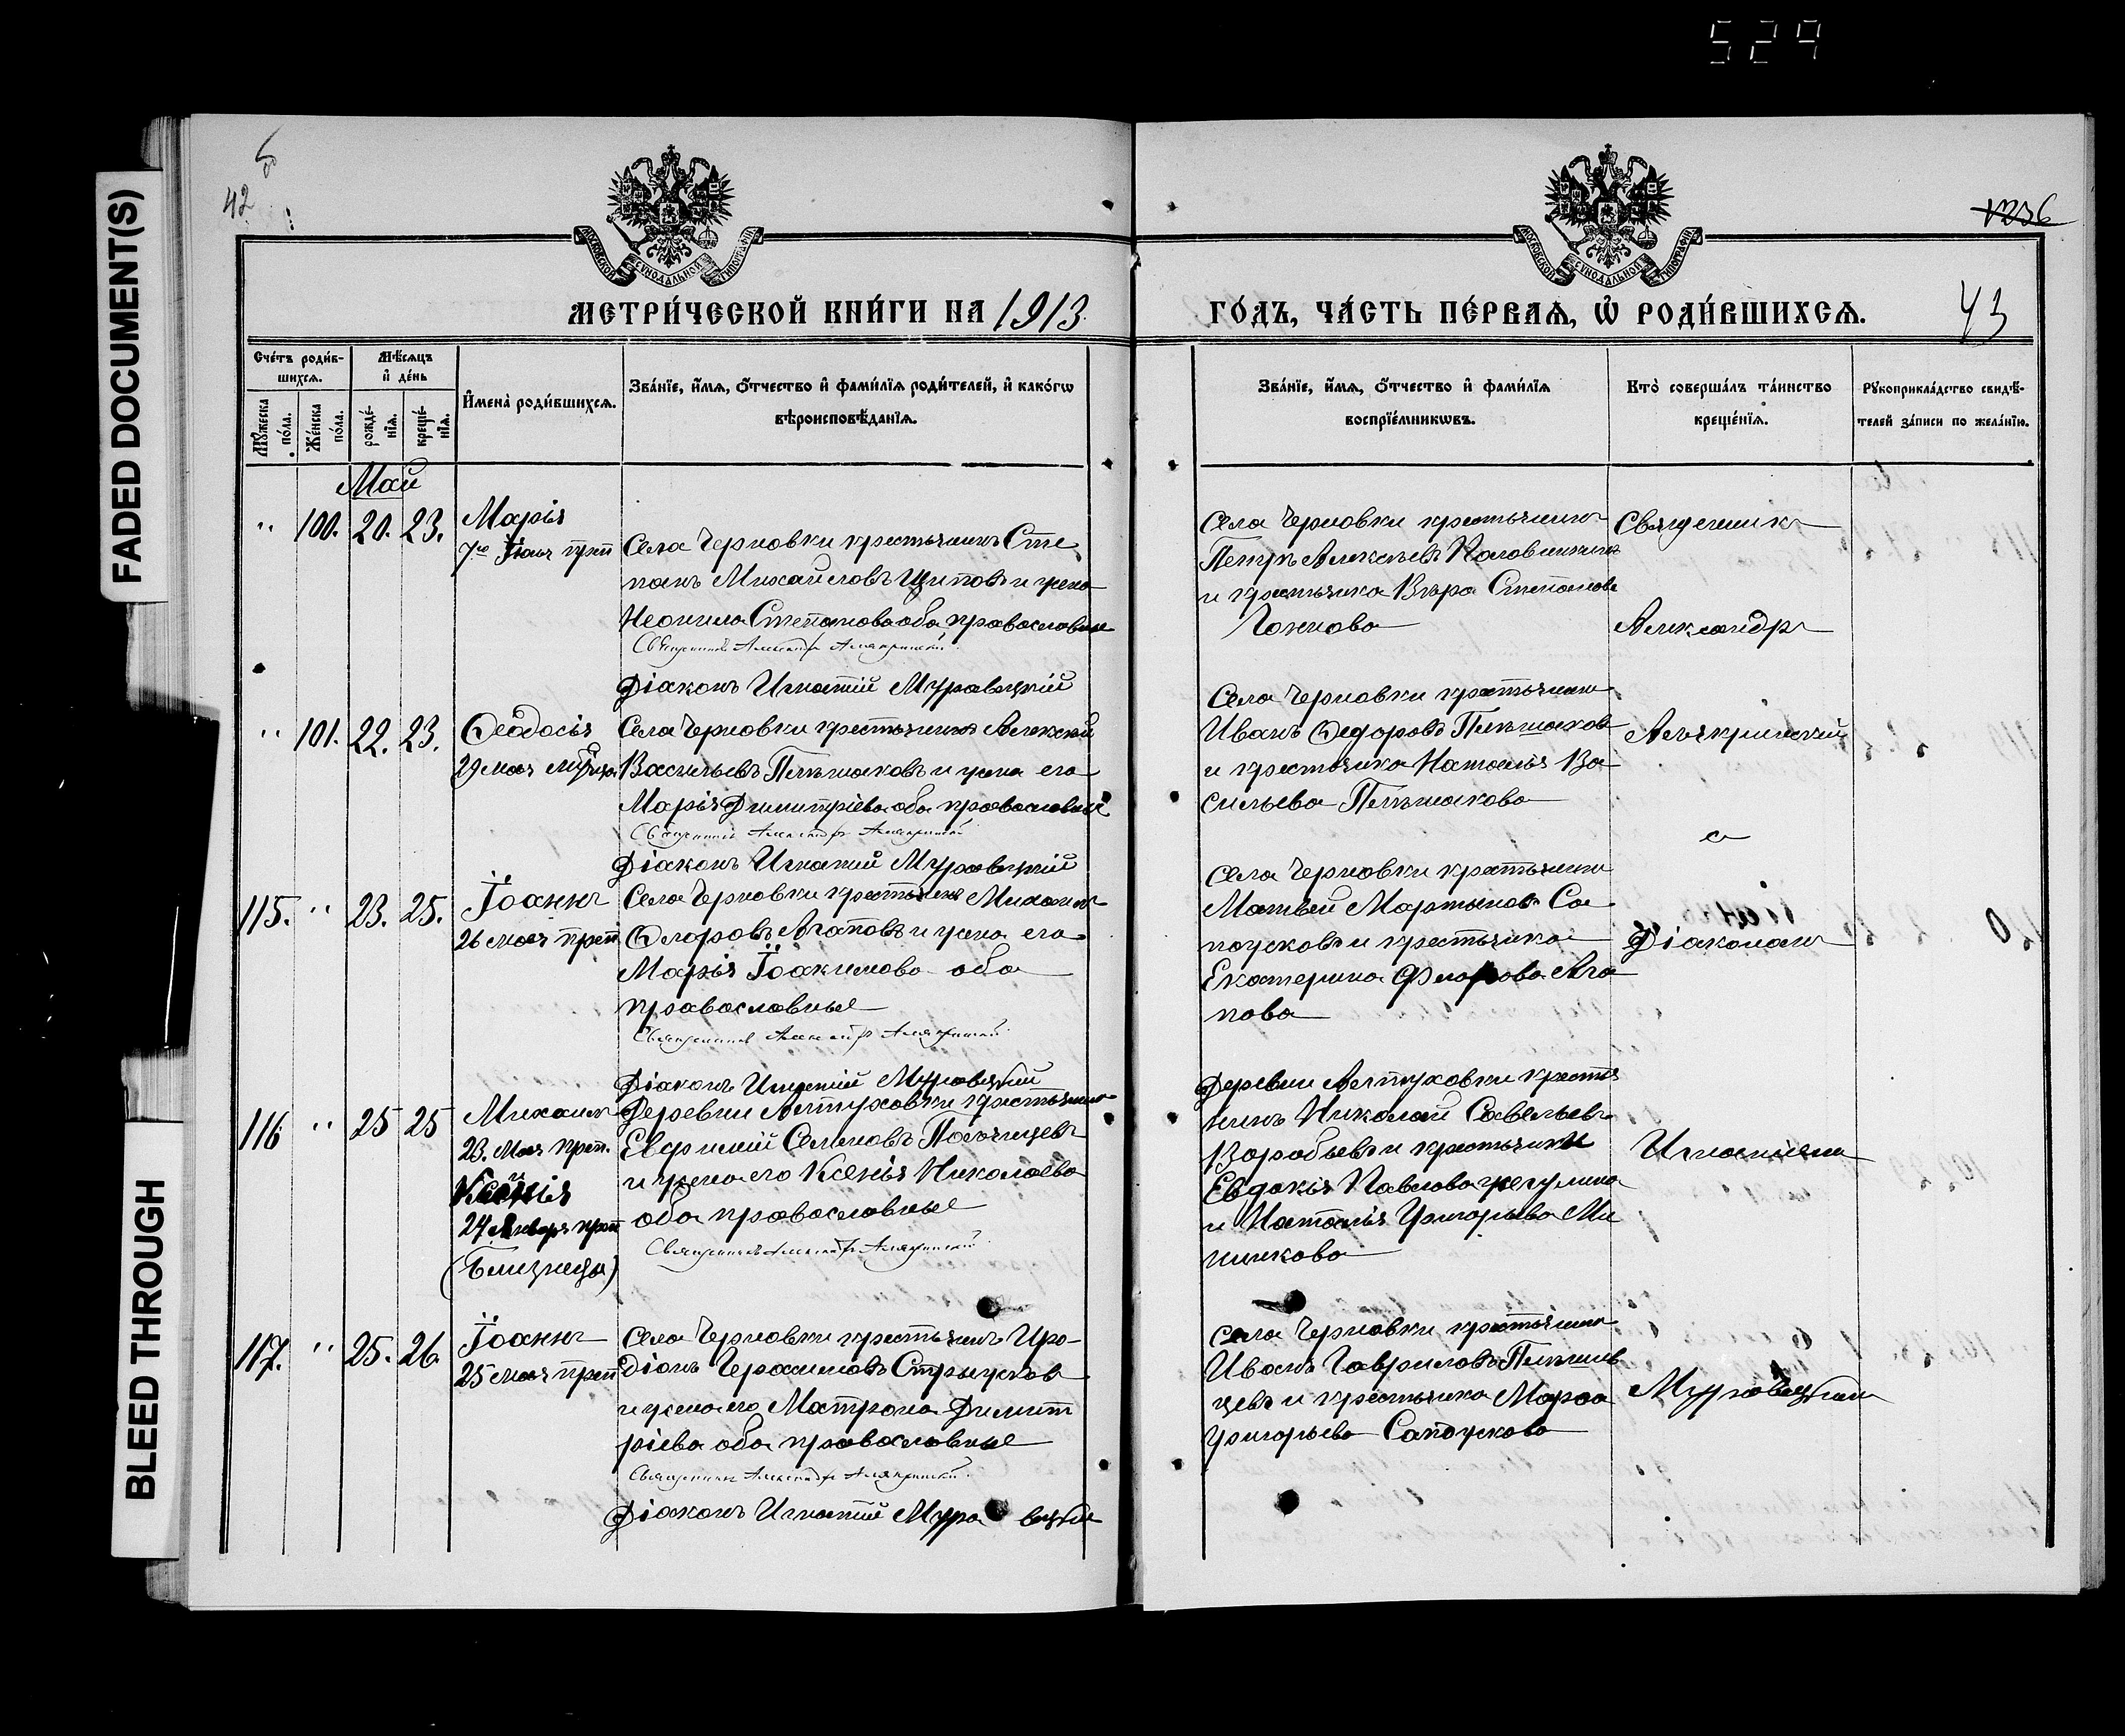 529
FADED DOCUMENT(S)
BLEED THROUGH
42
1236
43
МОСКОВСКОЙ СѴНОДАЛЬНОЙ ТИПОГРАФІИ
МОСКОВСКОЙ СѴНОДАЛЬНОЙ ТИПОГРАФІИ
МЕТРИ́ЧЕСКОЙ КНИ́ГИ НА 1913
ГО́ДЪ, ЧА́СТЬ ПЕ́РВАѦ, Ѡ҆ РОДИ́ВШИХСѦ.
Сче́тъ роди́в-
шихсѧ.
Мꙋ́жеска
по́ла.
Же́нска
по́ла.
Мѣ́сѧцъ
и҆ де́нь
рожде́-
нїѧ.
креще́-
нїѧ.
И҆мена̀ роди́вшихсѧ.
Зва́нїе, и҆́мѧ, ѻ҆́тчество и҆ фами́лїѧ роди́телей, и҆ како́гѡ
вѣроисповѣ́данїѧ.
Зва́нїе, и҆́мѧ, ѻ҆́тчество и҆ фами́лїѧ
воспрїе́мникѡвъ.
Кто̀ соверша́лъ та́инство
креще́нїѧ.
Рꙋкоприкла́дство свидѣ́-
телей за́писи по жела́нїю.
Май
" 100. 20. 23.
Марія
Села Черновки крестьянинъ Сте
панъ Михайловъ Щиповъ и жена
Неонила Степанова оба православные
Священникъ Александръ Алякринскій
Діаконъ Игнатій Муравицкій
Села Черновки крестьянинъ
Петръ Алексѣевъ Половинкинъ
и крестьянка Вѣра Степанова
Священникъ
Александръ
" 101. 22. 23.
Ѳеодосія
29 мая мучца
Села Черновки крестьянинъ Алексѣй
Васильевъ Пальшаковъ и жена его
Марія Димитріева оба православные
Священникъ Александръ Алякринскій
Діаконъ Игнатій Муравицкій
Села Черновки крестьянинъ
Иванъ Ѳедоровъ
и крестьянка Наталія Ва
сильева
Алякринскій
с
115. " 23. 25.
Іоаннъ
26 мая преп
Села Черновки крестьянинъ Михаилъ
Флоровъ Агаповъ и жена его
Марія Іоакимова оба
православные
Священникъ Александръ Алякринскій
Діаконъ Игнатій Муравицкій
Села Черновки крестьянинъ
Матвей Мартыновъ Са
поусковъ и крестьянка
Екатерина Флорова Ага
пова
Діакономъ
116 " 25 25
Михаилъ
23. Мая преп.
Ксенія
24 Января преп
(Близнецы)
Деревни Алтуховки крестьянинъ
Семеновъ
и жена его Ксенія Николаева
оба православные
Священникъ Александръ Алякринскій
Деревни Алтуховки крестья
нинъ Николай Савельевъ
Воробьевъ и крестьянки
Евдокія Павлова
и Наталія Григорьева Ми
Игнатіемъ
117. " 25. 26.
Іоаннъ
25 мая преп
Села Черновки крестьянинъ Иро-
діонъ Герасимовъ Стрыгусковъ
и жена его Матрона Димит
ріева оба православные
Священникъ Александръ Алякринскій
Діаконъ Игнатій Мура вицкій
Села Черновки крестьянинъ
Иванъ Гавриловъ
цевъ и крестьянка Марѳа
Григорьева Сапоускова
Муравицкимъ